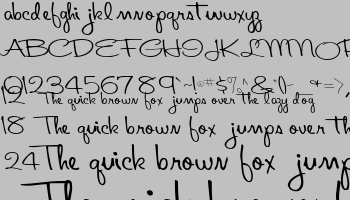 abcdefghi jklmnopqrstuvwxyz
ABCDEFGHIJKLMNOP
0123456789
12 The quick brown fox jumps over the lazy dog
18 The quick brown fox jumps over th
24 The quick brown fox jump